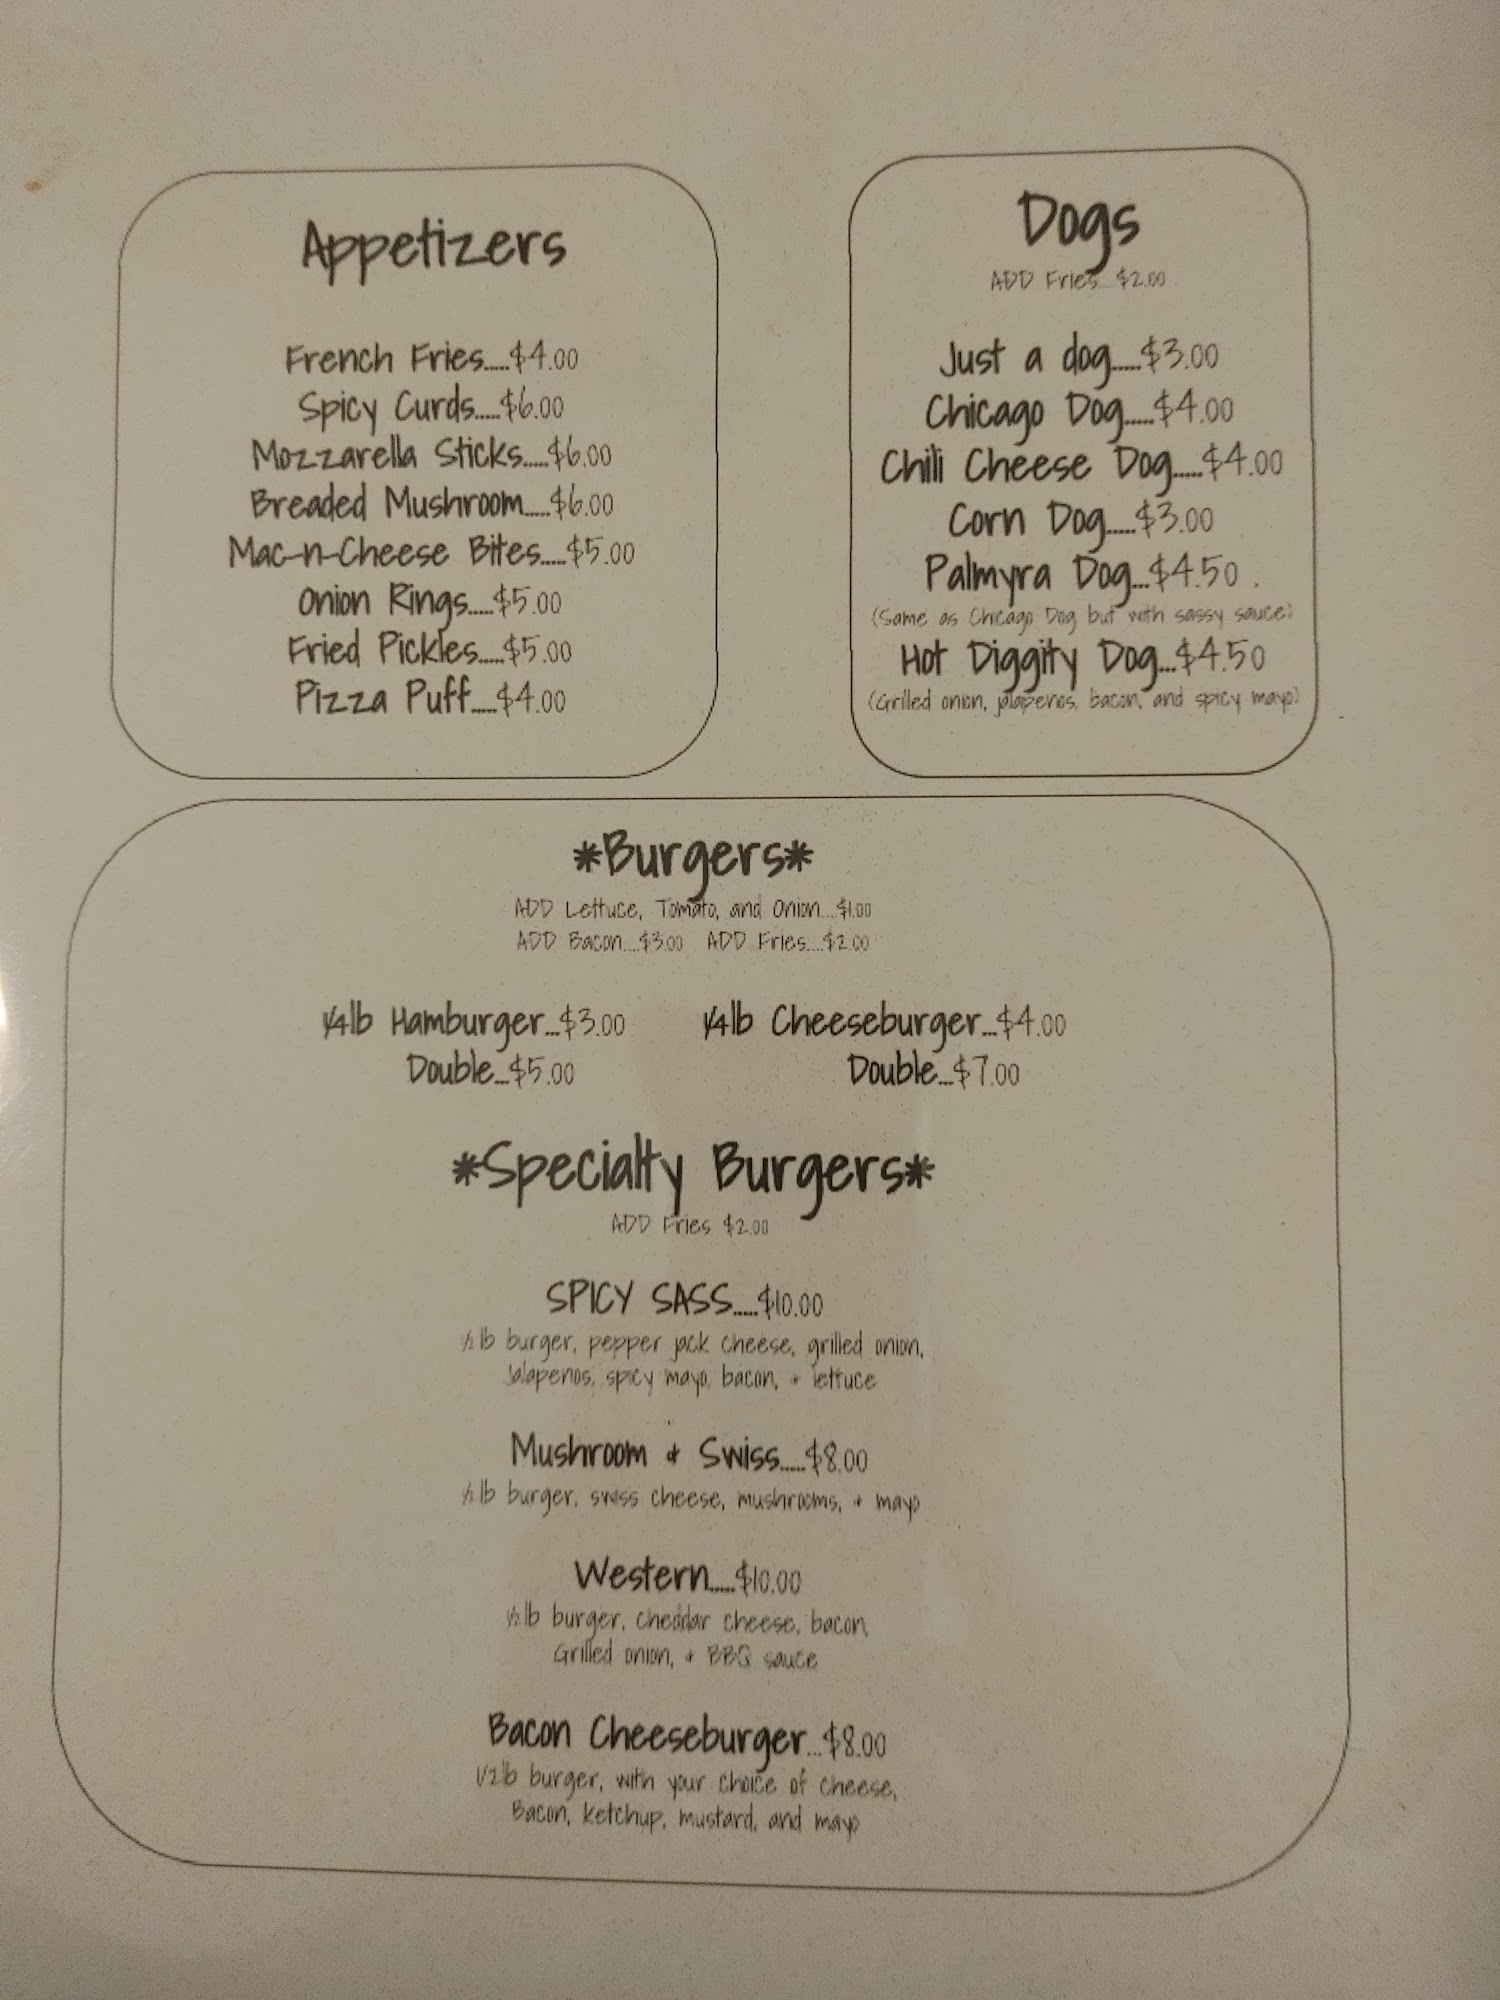 Appetizers
French Fries.....$4.00
Spicy Curds.....$6.00
Mozzarella Sticks.....$6.00
Breaded Mushroom.....$6.00
Mac-n-Cheese Bites.....$5.00
Onion Rings.....$5.00
Fried Pickles.....$5.00
Pizza Puff.....$4.00
Dogs
ADD Fries....$2.00
Just a dog.....$3.00
Chicago Dog.....$4.00
Chili Cheese Dog.....$4.00
Corn Dog.....$3.00
Palmyra Dog...$4.50 .
(Same as Chicago Dog but with sassy sauce)
Hot Diggity Dog...$4.50
(Grilled onion, jalapenos, bacon, and spicy mayo)
*Burgers*
ADD Lettuce, Tomato, and Onion....$1.00
ADD Bacon....$3.00 ADD Fries....$2.00
1/4lb Hamburger...$3.00 1/4lb Cheeseburger...$4.00
Double...$5.00 Double...$7.00
*Specialty Burgers*
ADD Fries $2.00
SPICY SASS.....$10.00
½ lb burger, pepper jack cheese, grilled onion,
Jalapenos, spicy mayo, bacon, + lettuce
Mushroom + Swiss.....$8.00
½ lb burger, swiss cheese, mushrooms, + mayo
Western.....$10.00
½ lb burger, cheddar cheese, bacon,
Grilled onion, + BBQ sauce
Bacon Cheeseburger...$8.00
1/2lb burger, with your choice of cheese,
Bacon, ketchup, mustard, and mayo